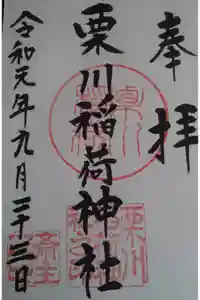 奉拝
栗川稲荷神社
令和元年九月二十三日